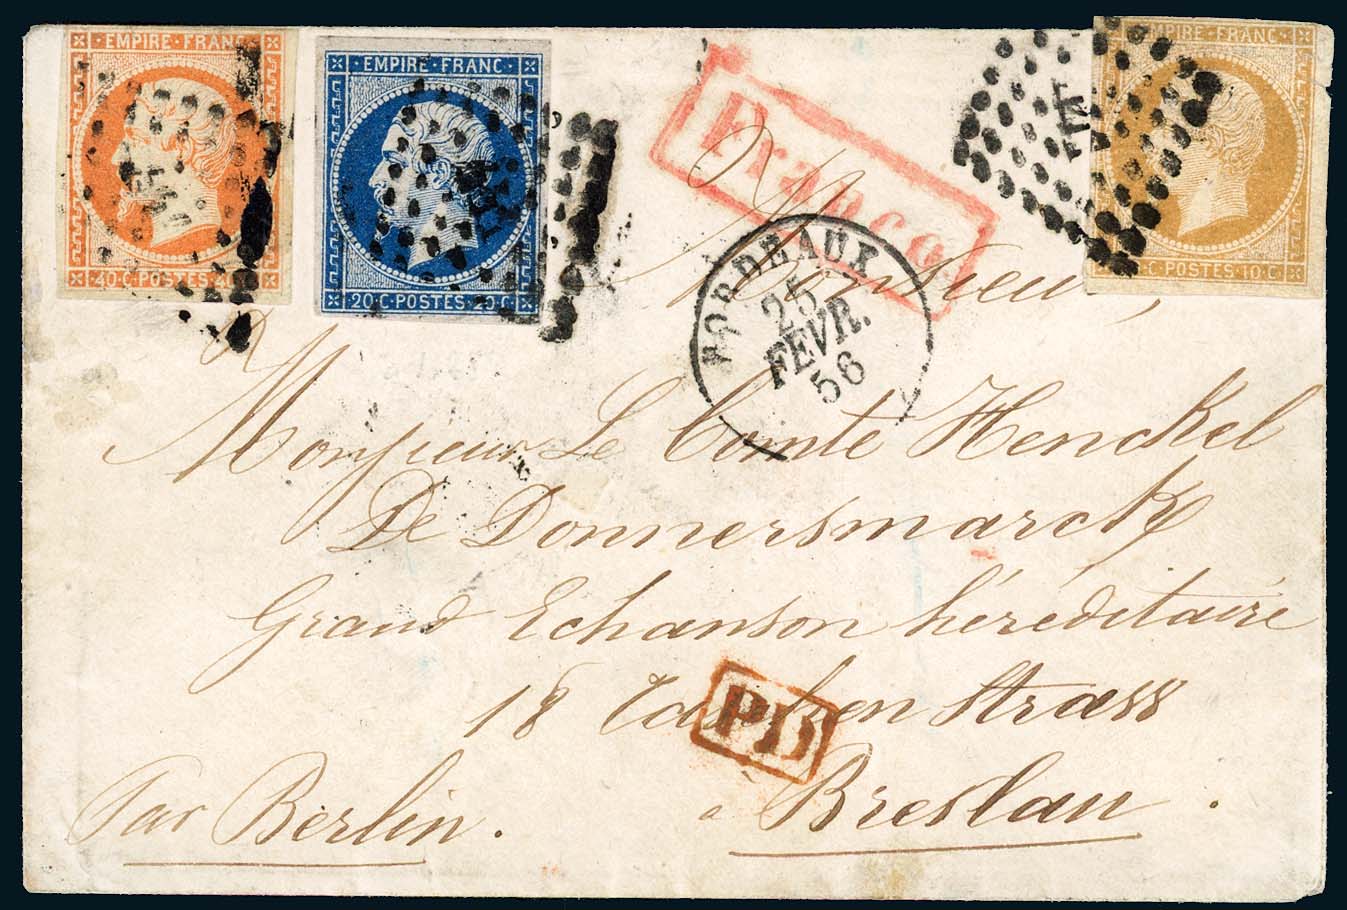 EMPIRE·FRANC
40·C·POSTES·40
EMPIRE·FRANC·
20·C·POSTES·20·C·
EMPIRE·FRANC·
C·POSTES·10·C·
Franco
BORDEAUX
25
FEVR.
56
A
Monsieur,
Monsieur Le Comte Henckel
De Donnersmarck
Grand Echanson héréditaire
18 Taschen Strass
PD
Par Berlin. à Breslau.